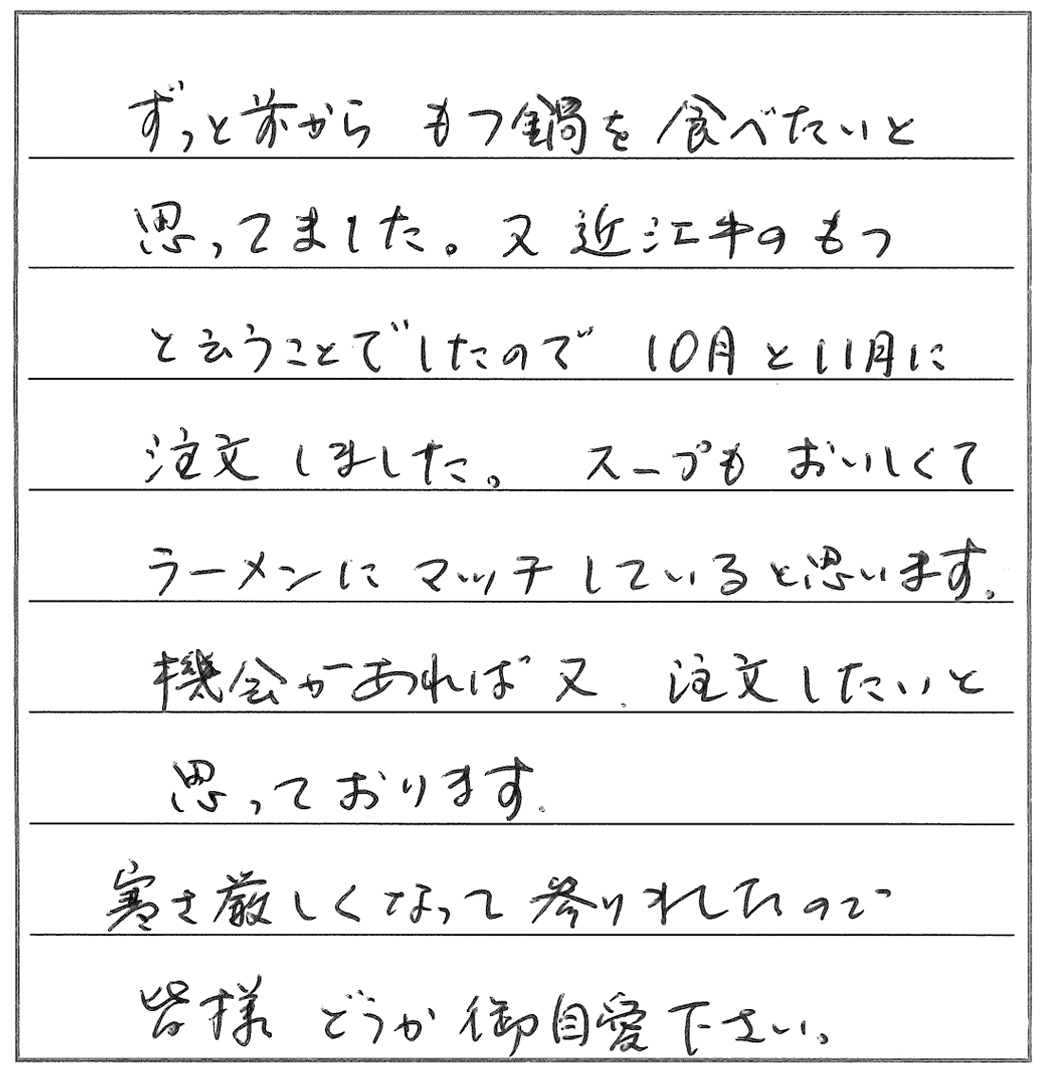 ずっと前から もつ鍋を食べたいと
思ってました。又 近江牛のもつ
と云うことでしたので 10月と11月に
注文しました。 スープも おいしくて
ラーメンに マッチしていると思います。
機会があれば 又、注文したいと
思っております。
寒さ厳しくなって参りましたので
皆様 どうか御自愛下さい。